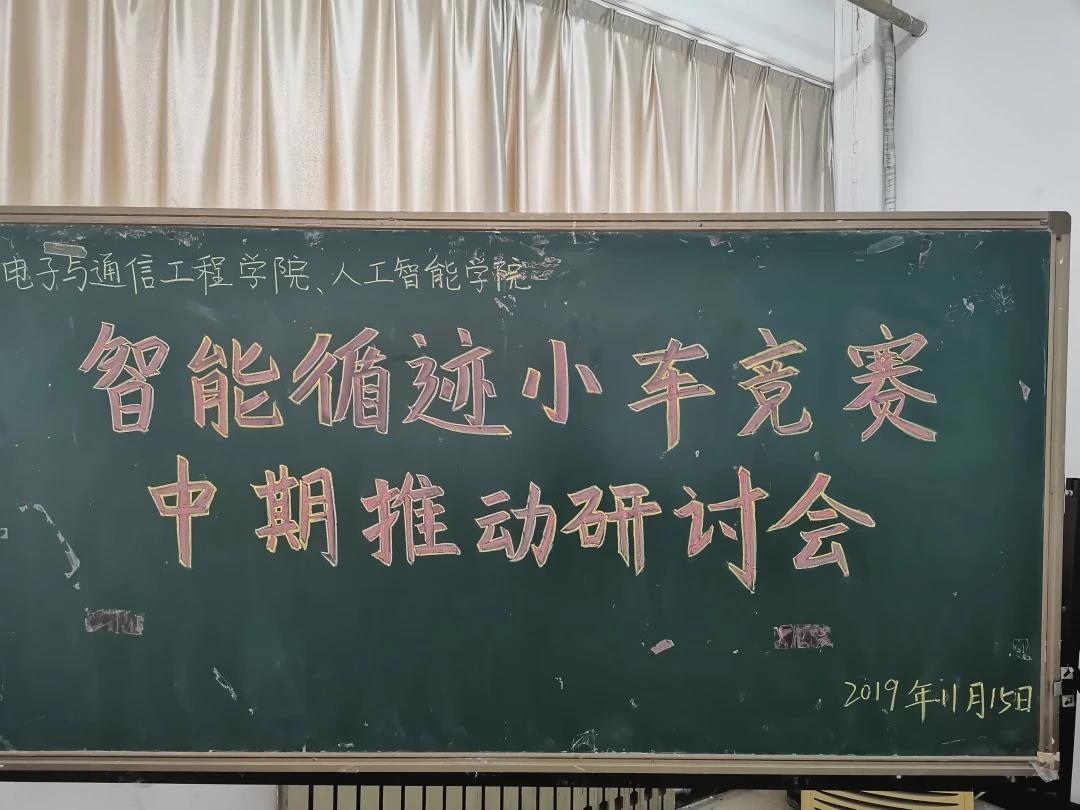 电子与通信工程学院、人工智能学院
智能循迹小车竞赛
中期推动研讨会
2019年11月15日